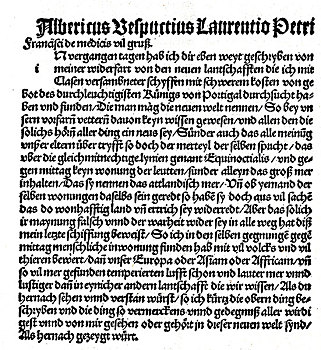 Albericus Vesputius Laurentio Petri
Francisci de medicis vil grůß.
N vergangen tagen hab ich dir eben weyt geschryben von
i meiner widerfart von den neuen lantschafften die ich mit
Clasen versambneter schyffen mit schwerem kosten von ge
bot des durchleuchtigisten Künigs von Portigal durchsucht ha
ben vnd funden / Die man mag die newe welt nennen / So bey vn
sern vorfarñ vetterñ dauon keyn wissen gewesen / vnd allen den die
solichs hörñ aller ding ein neus sey / Sunder auch das alle meinũg
vnser eltern über tryfft so doch der merteyl der selben spricht / das
vber die gleichmittnechtige lynien genant Equinoctialis / vnd ge-
gen mittag keyn wonung der leutten / sunder alleyn das groß mer
inhalten / Das sy nennen das attlandisch mer / Vñ ob yemand der
selben wonungen daselbs sein geredt so habē sy doch aus vil sachē
das do wonhafftig land vñ ertrich sey widerredt / Aber das solich
ir maynung falsch vnnd der warheit wider sey in alle weg hat diß
mein letzte schiffung beweist / So ich in den selben gegnungē gegē
mittag menschliche inwonung finden hab mit vil volcks vnd vil
thieren bewert / dañ vnser Europa oder Asiam oder Affricam / vñ
so vil mer gefunden temperierten lufft schon vnd lauter mer vnnd
lustiger dañ in eynicher andern lantschafft die wir wissen / Als du
hernach sehen vnnd verstan würst / so ich kürtz die obern ding be-
schryben vnd die ding so vermerckens vnnd gedegnuß aller wir di
gest vnnd von mir gesehen oder gehört in dieser neuen welt synd /
Als hernach gezeygt würt.